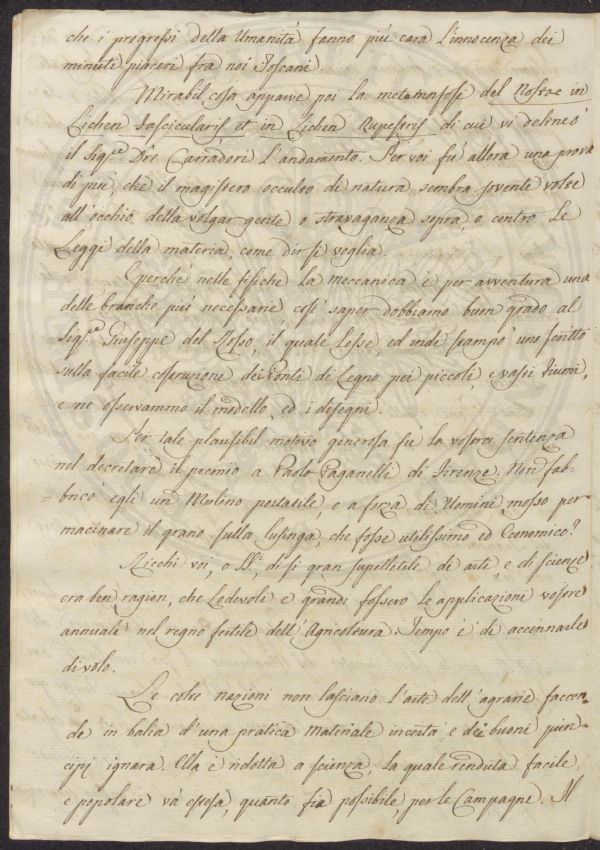 che i progressi della Umanità fanno più cara l'innocenza dei
minuti piaceri fra noi Toscani.
Mirabil cosa apparve poi la metamorfose del Nostoc in
Lichen Fascicularis, et in Lichen Rupestris di cui vi delineò
il Sigr. Dre. Carradori l'andamento. Per voi fu allora una prova
di più che il magistero occulto di natura sembra sovente volte
all'occhio della volgar gente o stravaganza sopra, o contro le
Leggi della materia, come dir si voglia.
E perchè nelle fisiche la meccanica è per avventura una
delle branche più necessarie così saper dobbiamo buon grado al
Sigr. Giuseppe del Rosso, il quale lesse, ed indi stampò uno scritto
sulla facile costruzione dei Ponti di Legno pei piccoli, e vasti Fiumi,
e ne osservammo il modello, ed i disegni.
Per tale plausibil motivo generosa fù la vostra sentenza
nel decretare il premio a Paolo Paganelli di Firenze. Non fab-
bricò egli un Mulino portatile, e a forza di Uomini mosso per
macinare il grano sulla lusinga, che fosse utilissimo ed Economico?
Ricchi voi, o SS.i, di sì gran supellettile di arti, e di scienze
era ben ragion, che Lodevoli e grandi fossero le applicazioni vostre
annuali nel regno fertile dell'Agricoltura. Tempo è di accennarle
di volo.
Le colte nazioni non lasciano l'arte dell'agrarie faccen-
de in balìa d'una pratica materiale incerta e dei buoni prin-
cipj ignara. Ella è ridotta a scienza, la quale renduta facile
e popolare và estesa, quanto fia possibile, per le Campagne. Il